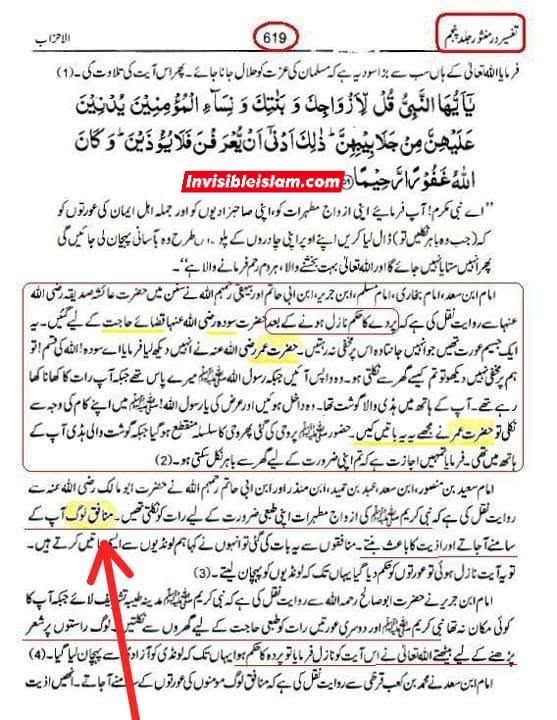 الاحزاب 619 تفسیر در منثور جلد پنجم
فرمایا اللہ تعالیٰ کے ہاں سب سے بڑا سود یہ ہے کہ مسلمان کی عزت کو حلال جانا جائے۔ پھر اس آیت کی تلاوت کی۔ (1)
یٰۤاَیُّهَا النَّبِیُّ قُلْ لِّاَزْوَاجِكَ وَ بَنٰتِكَ وَ نِسَآءِ الْمُؤْمِنِیْنَ یُدْنِیْنَ
عَلَیْهِنَّ مِنْ جَلَابِیْبِهِنَّ ؕ ذٰلِكَ اَدْنٰۤی اَنْ یُّعْرَفْنَ فَلَا یُؤْذَیْنَ ؕ وَ كَانَ
اللّٰهُ غَفُوْرًا رَّحِیْمًا
Invisibleislam.com
’’اے نبی مکرم! آپ فرمائیے اپنی ازواج مطہرات کو، اپنی صاحبزادیوں کو اور جملہ اہل ایمان کی عورتوں کو
کہ (جب وہ باہر نکلیں تو) ڈال لیا کریں اپنے اوپر اپنی چادروں کے پلو۔ اس طرح وہ بآسانی پہچان لی جائیں گی
پھر انہیں ستایا نہیں جائے گا اور اللہ تعالیٰ بہت بخشنے والا، ہر دم رحم فرمانے والا ہے‘‘۔
امام ابن سعد، امام بخاری، امام مسلم، ابن جریر، ابن ابی حاتم اور بیہقی رحمہم اللہ نے سنن میں حضرت عائشہ صدیقہ رضی اللہ
عنہا سے روایت نقل کی ہے کہ پردے کا حکم نازل ہونے کے بعد حضرت سودہ رضی اللہ عنہا قضائے حاجت کے لیے گئیں۔ یہ
ایک جسیم عورت تھیں جو انہیں جانتا وہ اس پر مخفی نہ رہتیں۔ حضرت عمر رضی اللہ عنہ نے انہیں دیکھ لیا فرمایا اے سودہ! اللہ کی قسم! تو
ہم پر مخفی نہیں دیکھو تو تم کیسے گھر سے نکلتی ہو۔ وہ واپس آئیں جبکہ رسول اللہ ﷺ میرے پاس تھے جبکہ آپ رات کا کھانا کھا
رہے تھے۔ آپ کے ہاتھ میں ہڈی والا گوشت تھا۔ وہ داخل ہوئیں اور عرض کی یا رسول اللہ! ﷺ میں اپنے کام کی وجہ سے
نکلی تو حضرت عمر نے مجھے یہ یہ باتیں کیں۔ حضور ﷺ پر وحی کی گئی پھر وحی کا سلسلہ منقطع ہو گیا جبکہ گوشت والی ہڈی آپ کے
ہاتھ میں تھی۔ فرمایا تمہیں اجازت ہے کہ تم اپنی ضرورت کے لیے گھر سے باہر نکل سکتی ہو۔ (2)
امام سعید بن منصور، ابن سعد، عبد بن حمید، ابن منذر اور ابن ابی حاتم رحمہم اللہ نے حضرت ابو مالک رضی اللہ عنہ سے
روایت نقل کی ہے کہ نبی کریم ﷺ کی ازواج مطہرات اپنی طبعی ضرورت کے لیے رات کو نکلتی تھیں۔ منافق لوگ آپ کے
سامنے آ جاتے اور اذیت کا باعث بنتے۔ منافقوں سے یہ بات کی گئی تو انہوں نے کہا ہم لونڈیوں سے ایسی باتیں کرتے ہیں۔
تو یہ آیت نازل ہوئی تو عورتوں کو حکم دیا گیا یہاں تک کہ لونڈیوں کو پہچان لیتے۔ (3)
امام ابن جریر نے حضرت ابو صالح رحمہ اللہ سے روایت نقل کی ہے کہ نبی کریم ﷺ مدینہ طیبہ تشریف لائے جبکہ آپ کا
کوئی مکان نہ تھا نبی کریم ﷺ اور دوسری عورتیں رات کو طبعی حاجت کے لیے گھروں سے نکلتیں۔ لوگ راستوں پر شعر
پڑھنے کے لیے بیٹھتے اللہ تعالیٰ نے اس آیت کو نازل فرمایا تو پردہ کا حکم ہوا یہاں تک کہ لونڈی کو آزادی سے پہچان لیا گیا۔ (4)
امام ابن سعد نے محمد بن کعب قرظی سے روایت نقل کی ہے کہ منافق لوگ مومنوں کی عورتوں کے سامنے آ جاتے۔ انھیں اذیت